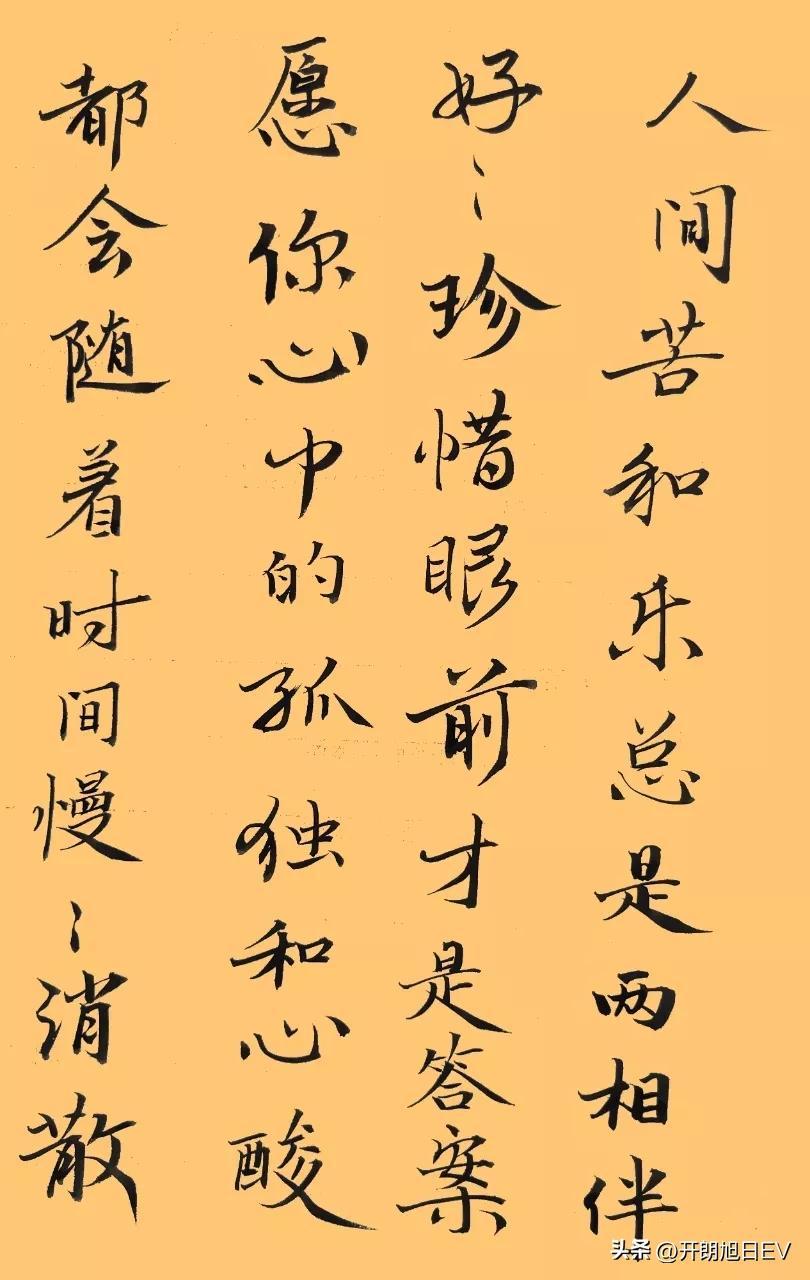 人间苦和乐总是两相伴
好〻珍惜眼前才是答案
愿你心中的孤独和心酸
都会随着时间慢〻消散
头条 @开朗旭日EV